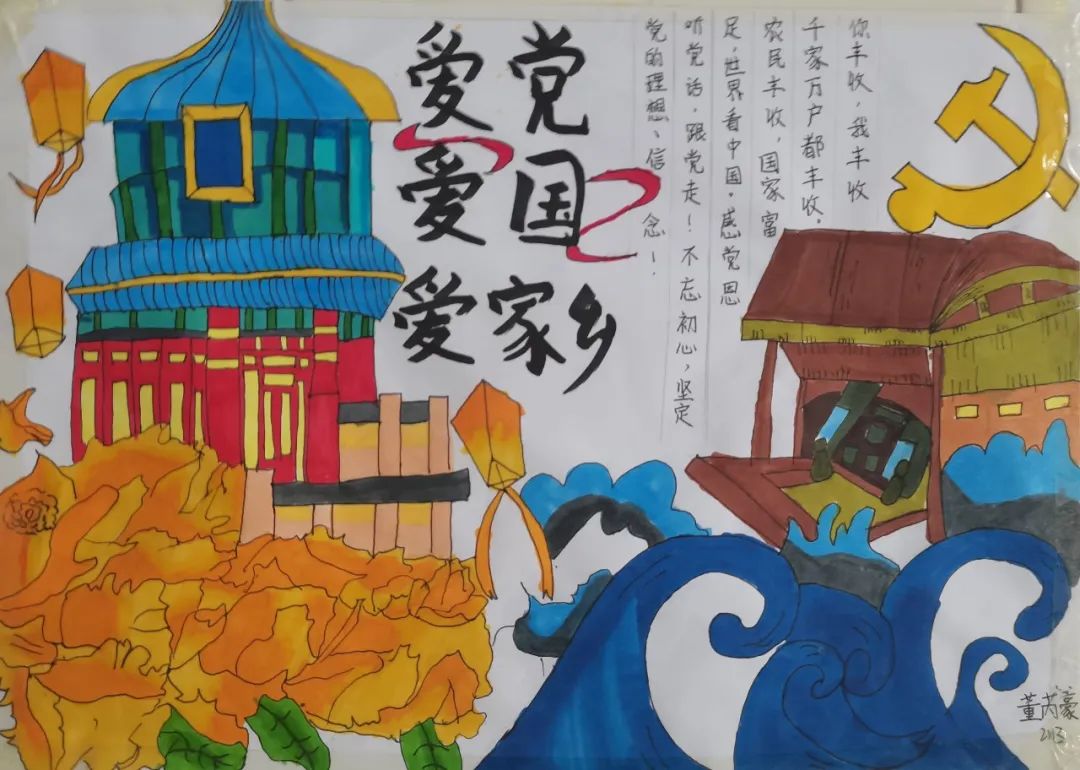 爱党
爱国
爱家乡
你丰收，我丰收
千家万户都丰收。
农民丰收，国家富
足，世界看中国。感党恩
听党话，跟党走！不忘初心，坚定
党的理想、信念！
董芮豪
2113